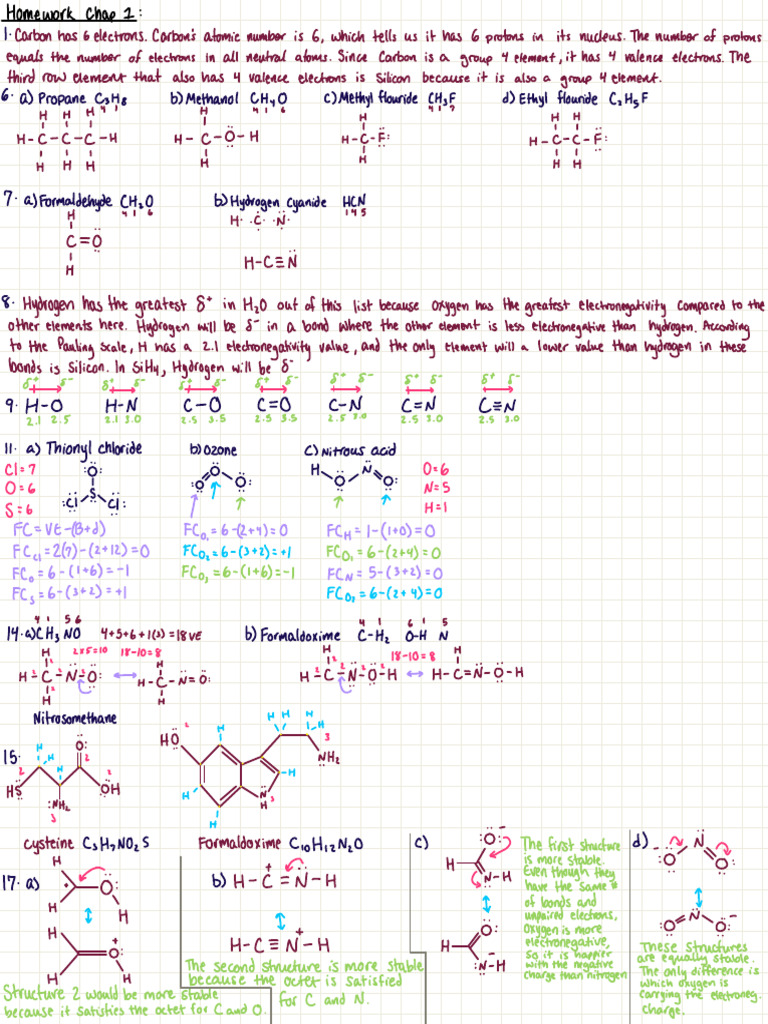 Homework Chap 1:
1. Carbon has 6 electrons. Carbon's atomic number is 6, which tells us it has 6 protons in its nucleus. The number of protons
equals the number of electrons in all neutral atoms. Since Carbon is a group 4 element, it has 4 valence electrons. The
third row element that also has 4 valence electrons is Silicon because it is also a group 4 element.
6. a) Propane C₃H₈ b) Methanol CH₄O c) Methyl flouride CH₃F d) Ethyl flouride C₂H₅F
4 1 4 1 6 4 1 7
H H H
H-C-C-C-H
H H H
H
H-C-O-H
H
H
H-C-F:
H
H H
H-C-C-F:
H H
7. a) Formaldehyde CH₂O b) Hydrogen cyanide HCN
4 1 6 1 4 5
H
C=O
H
H· ·C· ·N·
H-C≡N
8. Hydrogen has the greatest δ⁺ in H₂O out of this list because oxygen has the greatest electronegativity compared to the
other elements here. Hydrogen will be δ⁻ in a bond where the other element is less electronegative than hydrogen. According
to the Pauling scale, H has a 2.1 electronegativity value, and the only element will a lower value than hydrogen in these
bonds is Silicon. In SiH₄, Hydrogen will be δ⁻
δ⁺ δ⁻ δ⁺ δ⁻ δ⁺ δ⁻ δ⁺ δ⁻ δ⁺ δ⁻ δ⁺ δ⁻ δ⁺ δ⁻
9. H-O H-N C-O C=O C-N C=N C≡N
2.1 2.5 2.1 3.0 2.5 3.5 2.5 3.5 2.5 3.0 2.5 3.0 2.5 3.0
11. a) Thionyl chloride b) Ozone c) Nitrous acid
Cl=7
O=6
S=6
:O:
S
:Cl Cl:
O O O:
H O N O:
O=6
N=5
H=1
FC=VE-(B+d)
FC_Cl=2(7)-(2+12)=0
FC_O=6-(1+6)=-1
FC_S=6-(3+2)=+1
FC_O₁=6-(2+4)=0
FC_O₂=6-(3+2)=+1
FC_O₃=6-(1+6)=-1
FC_H=1-(1+0)=0
FC_O₁=6-(2+4)=0
FC_N=5-(3+2)=0
FC_O₂=6-(2+4)=0
4 1 5 6
14. a) CH₃NO 4+5+6+1(3)=18VE b) Formaldoxime C-H₂ O-H N
4 1 6 1 5
2x5=10 18-10=8
H
H-C-N-O:
H
H
H-C-N=O:
H
18-10=8
H
H-C-N-O-H
H
H-C=N-O-H
Nitrosomethane
15.
H H H
:O:
HS OH
:NH₂
HO
H H H H
NH₂
H H H H
N
H
cysteine C₃H₇NO₂S Formaldoxime C₁₀H₁₂N₂O
17. a)
H
O:
H H
H
O⁺
H H
Structure 2 would be more stable
because it satisfies the octet for C and O.
b) H-C⁺=N-H
H-C≡N⁺-H
The second structure is more stable
because the octet is satisfied
for C and N.
c)
:O:⁻
H
N-H
O:
H
N-H⁻
The first structure
is more stable.
Even though they
have the same #
of bonds and
unpaired electrons,
Oxygen is more
electronegative,
so it is happier
with the negative
charge than nitrogen
d)
⁻:O N O:
O=N O:⁻
These structures
are equally stable.
The only difference is
which oxygen is
carrying the electroneg.
charge.